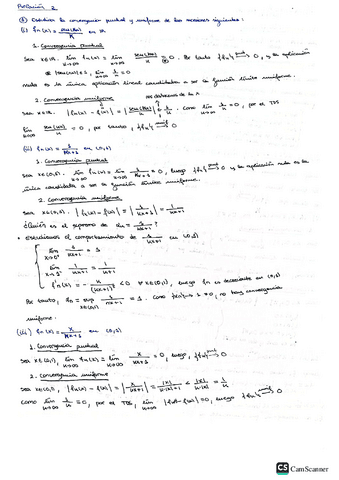 Relación 2
① Estudiar la convergencia puntual y uniforme de las sucesiones siguientes:
(i) fn(x) = sen(nx)/n en ℝ
1. Convergencia puntual
Sea x∈ℝ. lím n→∞ fn(x) = lím n→∞ sen(nx)/n = 0. Por tanto {fn} → 0, y la aplicación
* |sen(nx)| ≤ 1, lím n→∞ 1/n = 0
nula es la única aplicación candidata a ser la función límite uniforme.
2. Convergencia uniforme
no depende de la x
Sea x∈ℝ. |fn(x) - f(x)| = |sen(nx)/n| ≤ 1/n. Como lím n→∞ 1/n = 0, por el TDS
lím n→∞ sen(nx)/n = 0, por tanto, {fn} unif → 0
(ii) fn(x) = 1/(nx+1) en (0,1)
1. Convergencia puntual
Sea x∈(0,1). lím n→∞ fn(x) = lím n→∞ 1/(nx+1) = 0, luego {fn} → 0 y la aplicación nula es la
única candidata a ser la función límite uniforme.
2. Convergencia uniforme
Sea x∈(0,1). |fn(x) - f(x)| = |1/(nx+1)| = 1/(nx+1)
¿Quién es el supremo de 1/(nx+1)?
• Estudiamos el comportamiento de 1/(nx+1) en (0,1)
lím x→0 1/(nx+1) = 1
lím x→1 1/(nx+1) = 1/(n+1)
f'n(x) = -n/(nx+1)² < 0 ∀x∈(0,1), luego fn es decreciente en (0,1)
Por tanto, sup x∈(0,1) 1/(nx+1) = 1. Como 1 ≠ 0, no hay convergencia
uniforme.
(iii) fn(x) = x/(nx+1) en (0,1)
1. Convergencia puntual
Sea x∈(0,1), lím n→∞ fn(x) = lím n→∞ x/(nx+1) = 0, luego, {fn} → 0
2. Convergencia uniforme
Sea x∈(0,1), |fn(x) - f(x)| = |x/(nx+1)| = |x|/(n|x|+1) < |x|/(n|x|) = 1/n
Como lím n→∞ 1/n = 0, por el TDS, lím n→∞ |fn(x) - f(x)| = 0, luego {fn} unif → 0
CS CamScanner